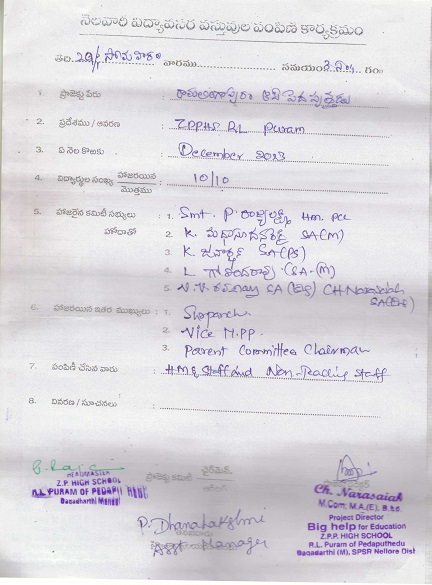 నెలవారి విద్యావసర వస్తువుల పంపిణి కార్యక్రమం
తేది. సోమవారం వారము సమయం గం॥
1. ప్రాజెక్టు పేరు :
2. ప్రదేశము / ఆవరణ : ZPPHS R.L Puram
3. ఏ నెల కొఱకు : December 2023
4. విద్యార్ధుల సంఖ్య హాజరయిన / మొత్తము : 10/10
5. హాజరైన కమిటీ సభ్యులు : 1. Smt. P. రాజ్యలక్ష్మి Hm.
హోదాతో 2. K. SA(M)
3. K. జనార్ధన్ SA(PS)
4. L గోవిందరావు (SA-M)
5. SA CH Narasaiah
6. హాజరయిన ఇతర ముఖ్యులు : 1. Sarpanch.
2. Vice M.PP.
3. Parent Committee Chairman
7. పంపిణీ చేసిన వారు : HM & Staff and Non-Teaching Staff
8. వివరణ / సూచనలు :
HEADMASTER
Z.P. HIGH SCHOOL
R.L. PURAM OF PEDAPU
Dagadarthi Mandal
ప్రాజెక్టు కమిటి చైర్మెన్
P. Dhanalakshmi
Manager
Ch. Narasaiah
M.Com; M.A.(E), B.Ed.
Project Director
Big help for Education
Z.P.P. HIGH SCHOOL
R.L. Puram of Pedaputhedu
Dagadarthi (M), SPSR Nellore Dist